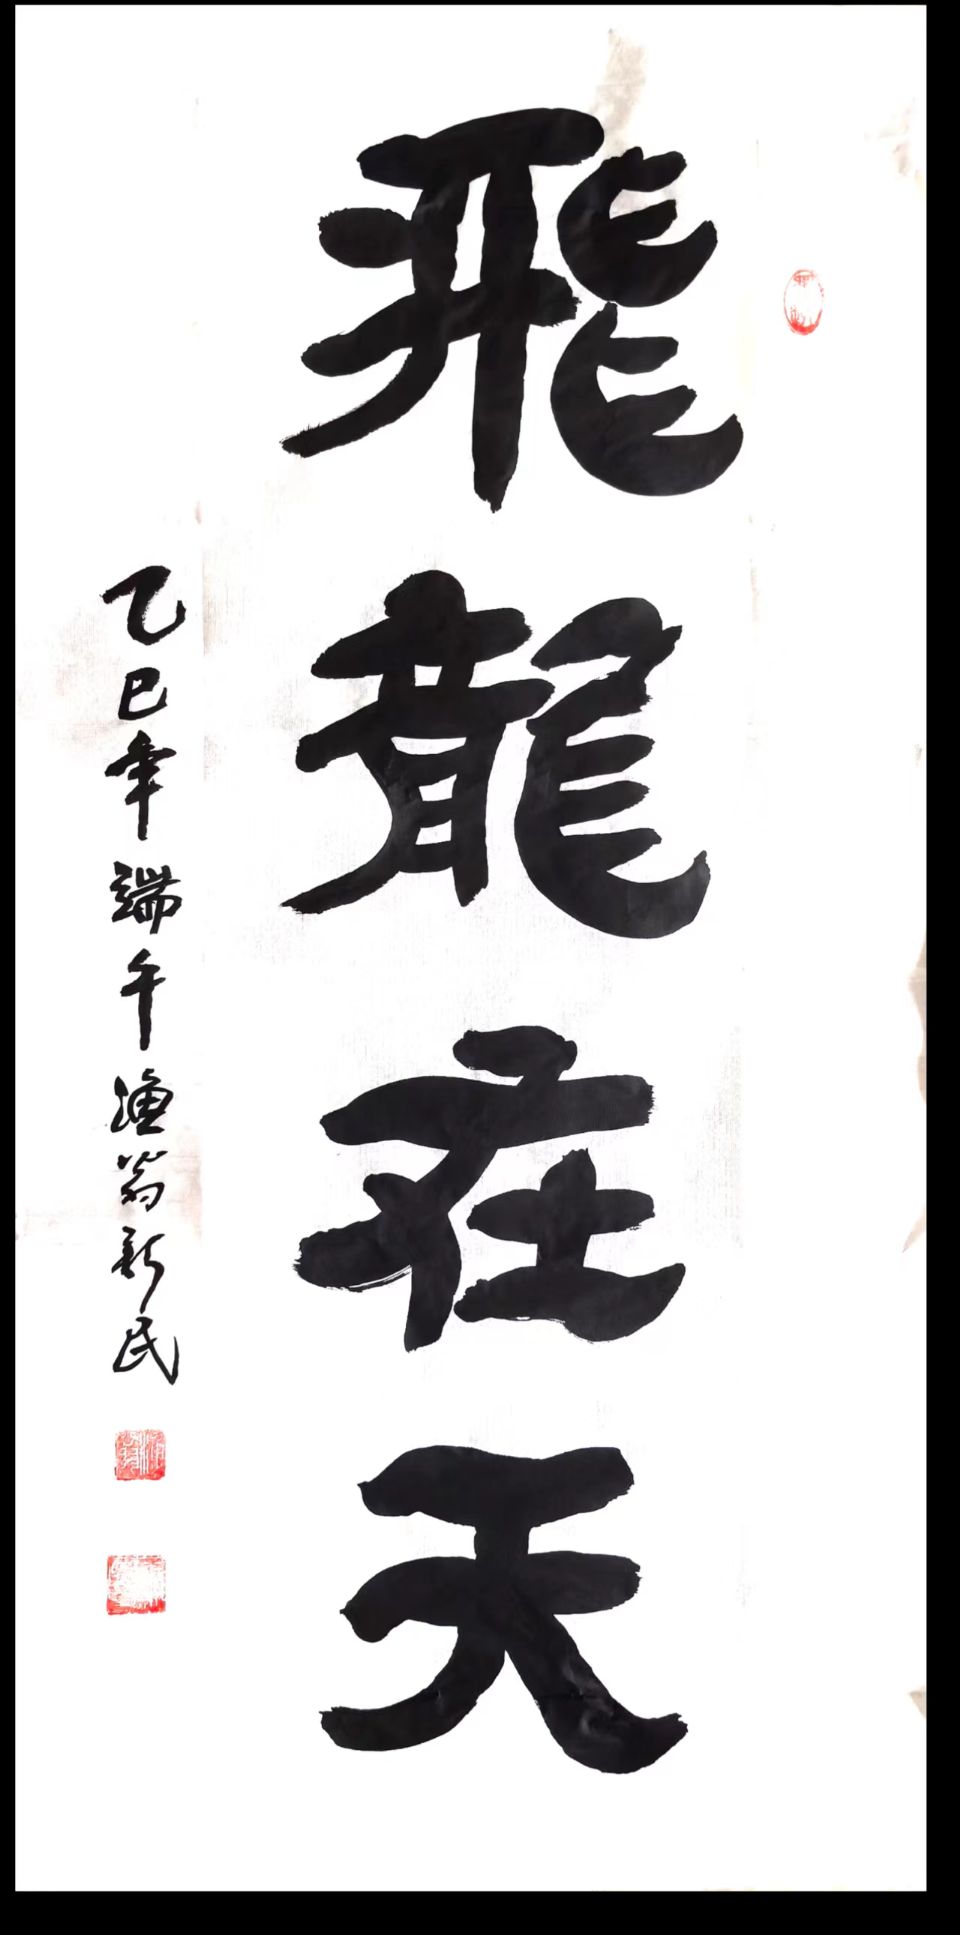 飛龍在天
乙巳年端午漁翁新民